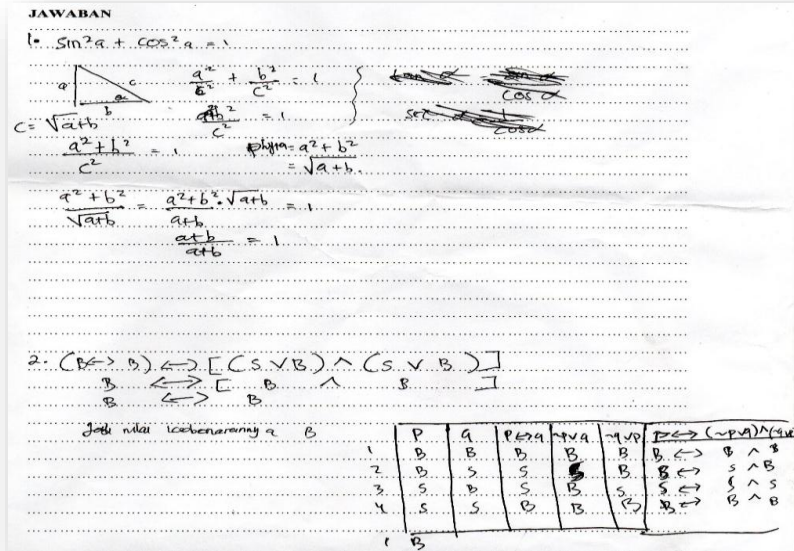 JAWABAN
1. sin²a + cos²a = 1
a c a b
a²/c² + b²/c² = 1
c = √a+b
a²+b²/c² = 1
phyta = a² + b²
= √a+b.
a²+b²/√a+b = a²+b²·√a+b/a+b = 1
a+b/a+b = 1
2. (B<->B) <-> [(S ∨ B) ∧ (S ∨ B)]
B <-> [ B ∧ B ]
B <-> B
Jadi nilai kebenarannya B
P q P<->q ~p∨q ~q∨p P<-> (~p∨q)∧(~q∨
1 B B B B B B <-> B ∧ B
2 B S S B B <-> S ∧ B
3 S B S B S S <-> ∧ S
4 S S B B B B <-> B ∧ B
1 B